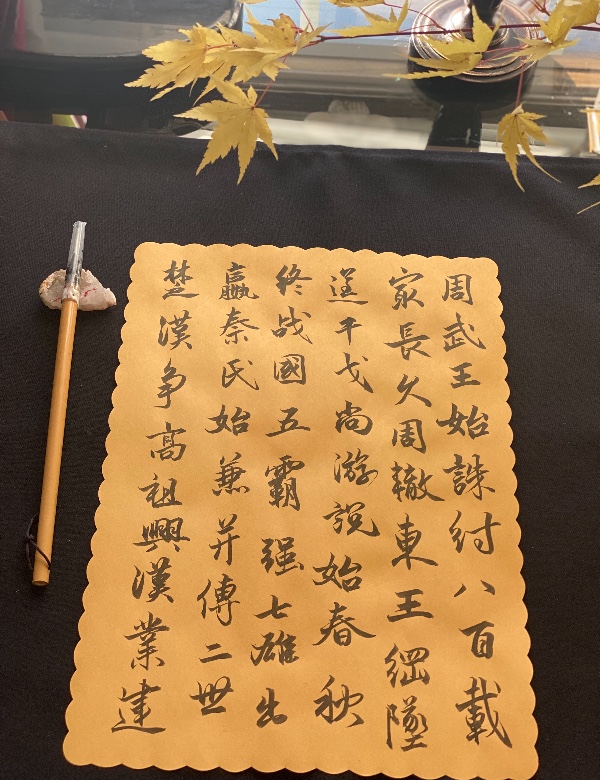 周武王始誅紂八百載
家長久周轍東王綱墜
逞干戈尚游說始春秋
終战國五霸强七雄出
嬴秦氏始兼并傳二世
楚漢争高祖興漢業建